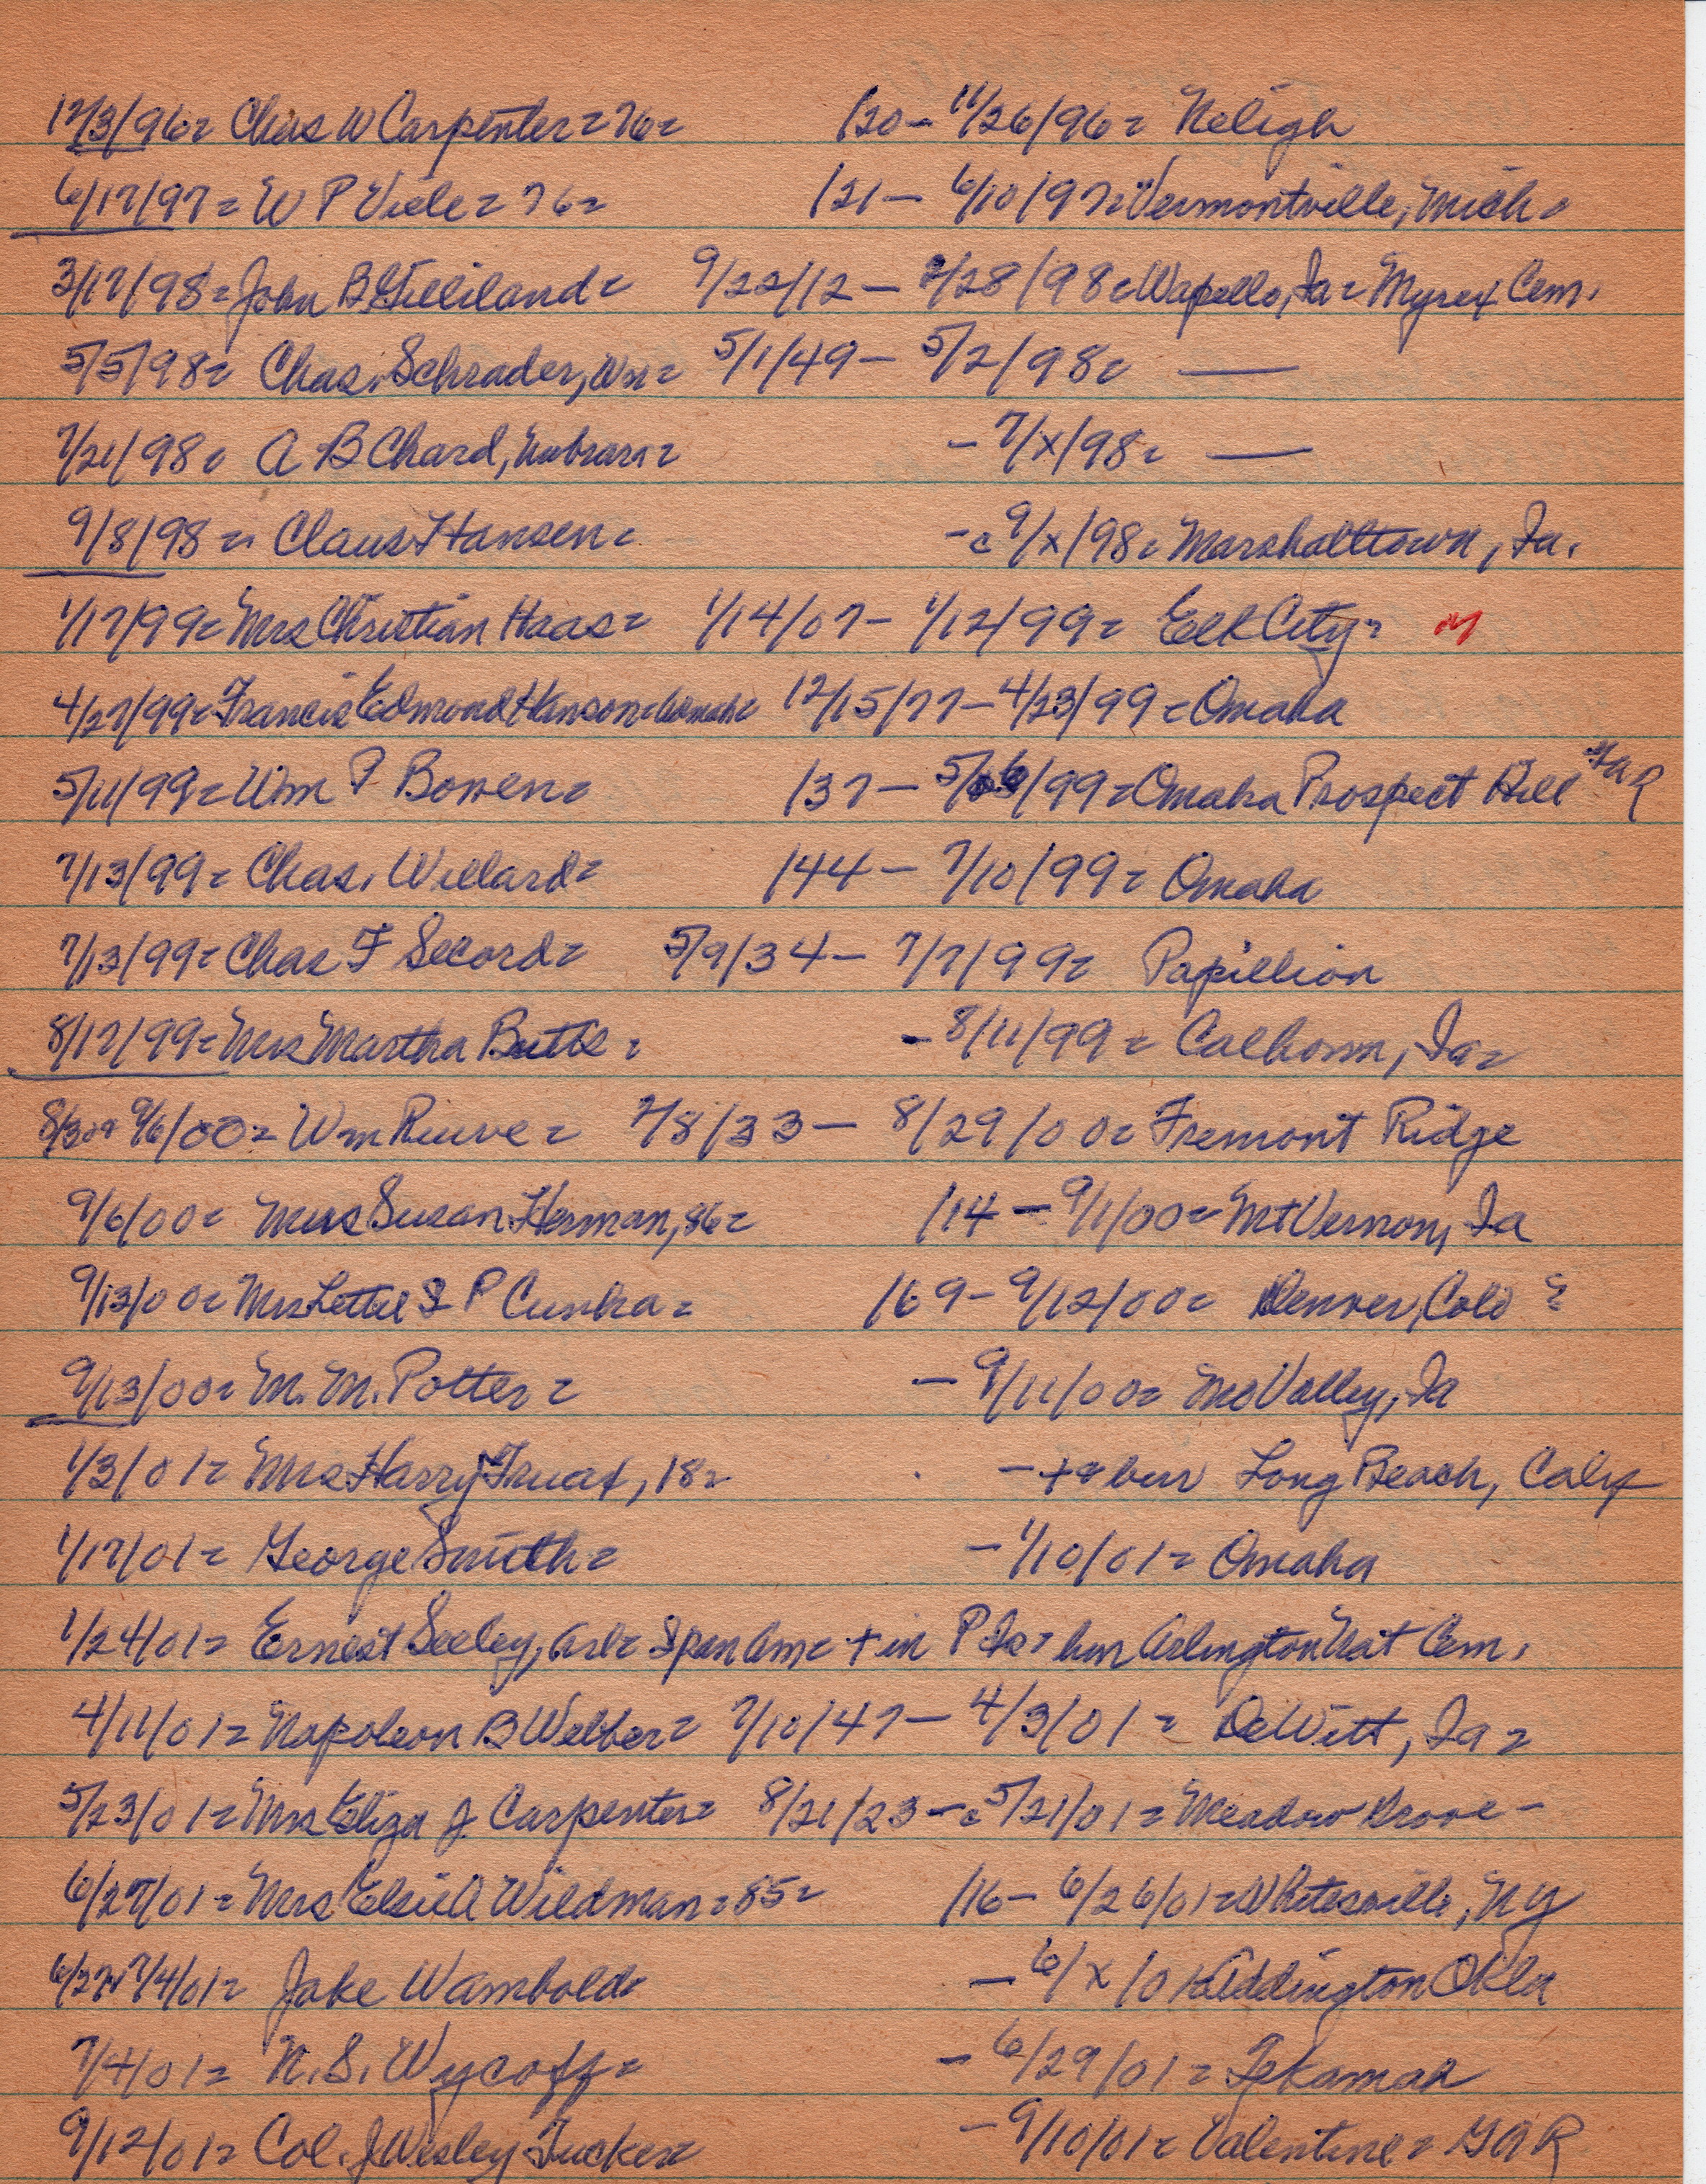 12/3/96= Chas W Carpenter = 76= /20 - 11/26/96= Neligh
6/17/97= W P Viele = 76= /21 - 6/10/97= Vermontville, Mich=
3/17/98= John B Gilliland= 9/22/12 - 2/28/98= Wapello, Ia= Cem.
5/5/98= Chas. Schrader, Wn= 5/1/49 - 5/2/98= —
7/21/98= A B Chard, = - 7/x/98= —
9/8/98= Claus Hansen= -c 9/x/98= Marshalltown, Ia.
1/17/99= Mrs Christian Haas= 1/14/07 - 1/12/99= Elk City= M
4/27/99= Francis Edmond Hanson= Omaha= 12/15/77 - 4/23/99= Omaha
5/11/99= Wm P Bowen= /37 - 5/6/99= Omaha Prospect Hill GAR
7/13/99= Chas. Willard= /44 - 7/10/99= Omaha
7/13/99= Chas F Secord= 5/9/34 - 7/7/99= Papillion
8/17/99= Mrs Martha Butts= - 8/11/99= Calhoun, Ia=
8/30+ 9/6/00= Wm Reeve= 7/8/33 - 8/29/00= Fremont Ridge
9/6/00= Mrs Susan Herman, 86= /14 - 9/1/00= Mt Vernon, Ia
9/13/00= Mrs P Cunka= /69 - 9/12/00= Denver, Colo =
9/13/00= M. M. Potter= - 9/11/00= Mo Valley, Ia
1/3/01= Mrs Harry Truax, 18= - + & bur Long Beach, Calif
1/17/01= George Smith= - 1/10/01= Omaha
1/24/01= Ernest Seeley, Arl= Span Am= + in P Is= bur Arlington Nat Cem.
4/11/01= Napoleon B Welber= 7/10/47 - 4/3/01= DeWitt, Ia=
5/23/01= Mrs Eliza J. Carpenter= 8/21/23 -c 5/21/01= Meadow Grove-
6/27/01= Mrs Elsie A Wildman= 85= /16 - 6/26/01= Whitesville, NY
6/27+7/4/01= Jake Wambold= - 6/x/01= Addington Okla
7/4/01= N. S. Wycoff= - 6/29/01= Tekamah
9/12/01= Col. J Wesley Tucker= - 9/10/01= Valentine= GAR